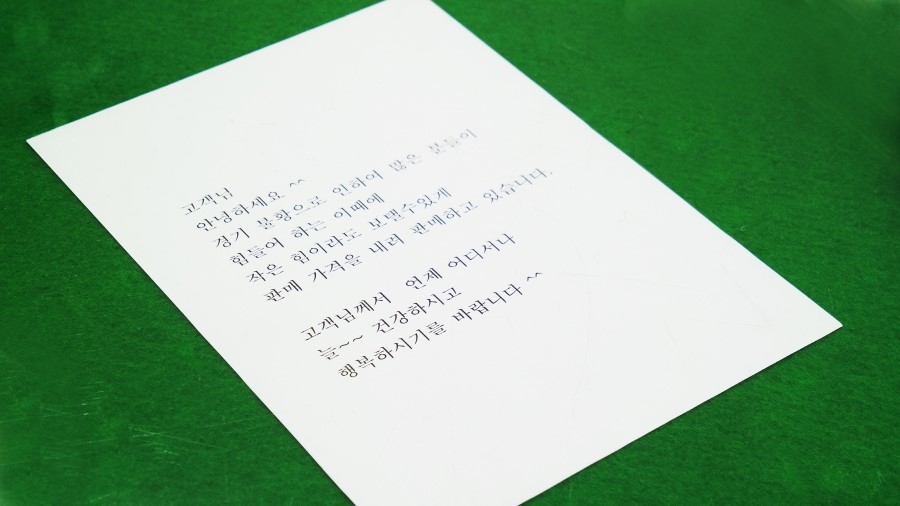 고객님
안녕하세요 ^^
경기 불황으로 인하여 많은 분들이
힘들어 하는 이때에
작은 힘이라도 보탤수있게
판매 가격을 내려 판매하고 있습니다.
고객님께서 언제 어디서나
늘~~ 건강하시고
행복하시기를 바랍니다 ^^